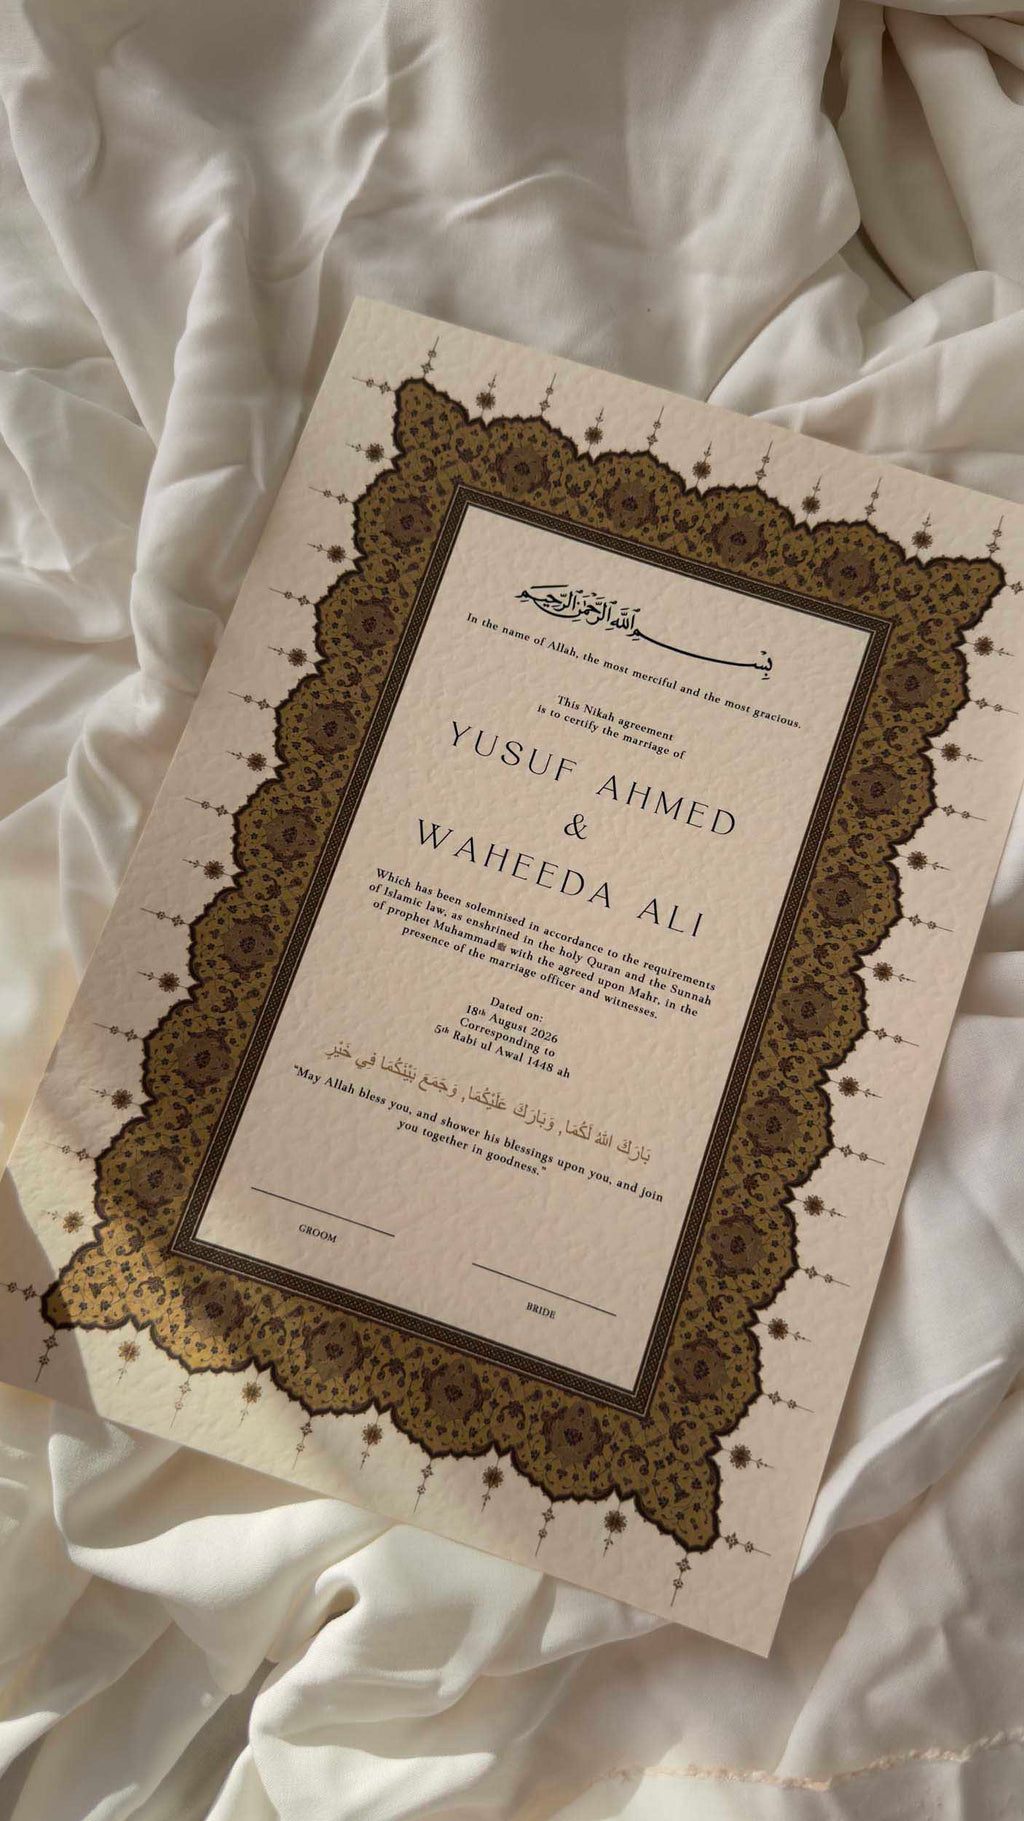 بِسْمِ اللَّهِ الرَّحْمَٰنِ الرَّحِيمِ
In the name of Allah, the most merciful and the most gracious.
This Nikah agreement
is to certify the marriage of
YUSUF AHMED
&
WAHEEDA ALI
Which has been solemnised in accordance to the requirements
of Islamic law, as enshrined in the holy Quran and the Sunnah
of prophet Muhammadﷺ with the agreed upon Mahr, in the
presence of the marriage officer and witnesses.
Dated on:
18th August 2026
Corresponding to
5th Rabi ul Awal 1448 ah
بَارَكَ اللهُ لَكُمَا, وَبَارَكَ عَلَيْكُمَا, وَجَمَعَ بَيْنَكُمَا فِي خَيْرٍ
“May Allah bless you, and shower his blessings upon you, and join
you together in goodness.”
GROOM
BRIDE